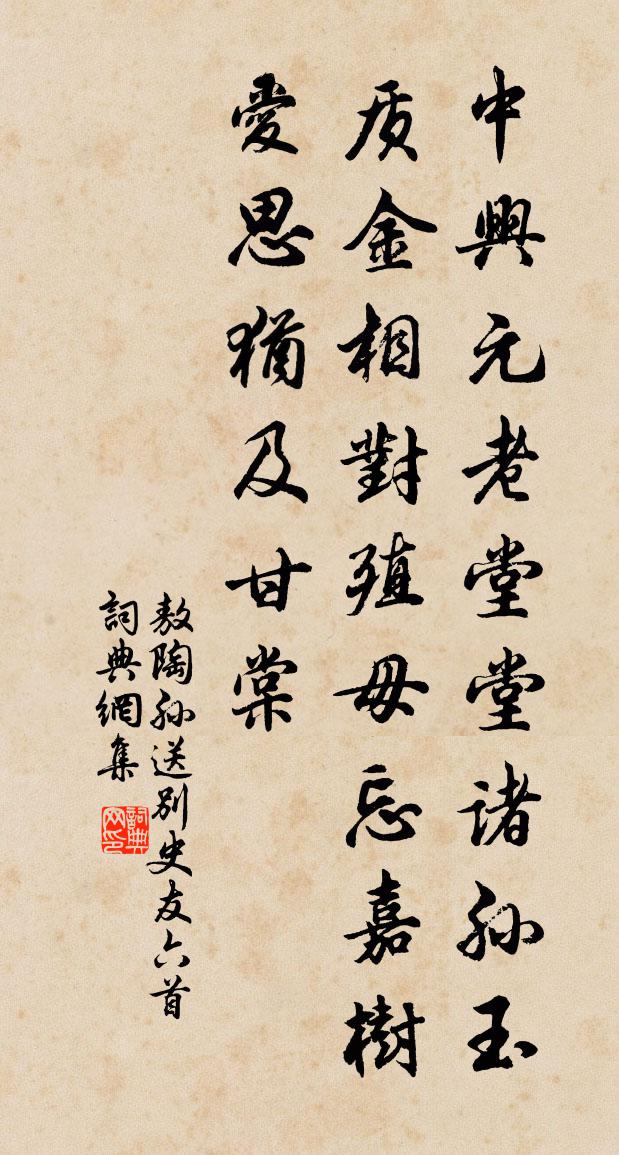 中興元老堂堂諸孙玉
质金相對殖毋忘嘉樹
愛思猶及甘棠
敖陶孙送别史友六首
詞典網集
詞典
网印